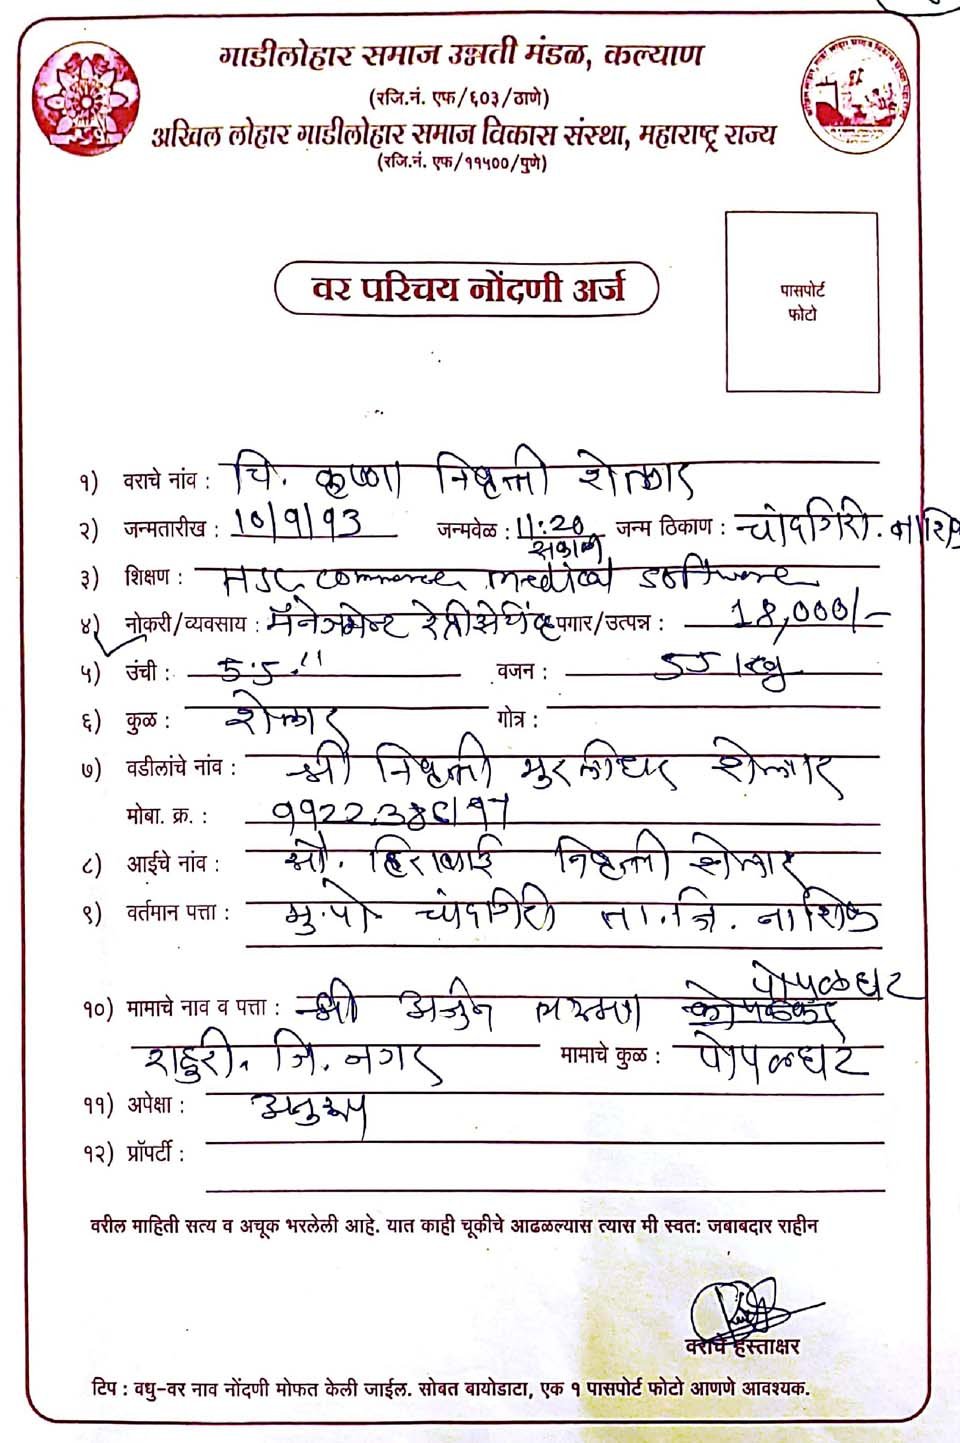 गाडीलोहार समाज उन्नती मंडळ, कल्याण
(रजि.नं. एफ/६०३/ठाणे)
अखिल लोहार गाडीलोहार समाज विकास संस्था, महाराष्ट्र राज्य
(रजि.नं. एफ/११५००/पुणे)
पासपोर्ट
फोटो
वर परिचय नोंदणी अर्ज
१) वराचे नांव : चि. कृष्णा निवृत्ती शेलार
२) जन्मतारीख : 10/9/93 जन्मवेळ : 11:20 सकाळी जन्म ठिकाण : चांदगिरी. नाशिक
३) शिक्षण : HSC commerce medical software
४) नोकरी/व्यवसाय : मॅनेजमेन्ट पगार/उत्पन्न : 18,000/-
५) उंची : 5.5." वजन : 55 kg
६) कुळ : शेलार गोत्र :
७) वडीलांचे नांव : श्री निवृत्ती मुरलीधर शेलार
मोबा. क्र. :
८) आईचे नांव : सौ. हिराबाई निवृत्ती शेलार
९) वर्तमान पत्ता : मु.पो चांदगिरी ता.जि. नाशिक
पोपळघट
१०) मामाचे नाव व पत्ता : श्री अर्जुन लक्ष्मण
राहुरी. जि. नगर मामाचे कुळ : पोपळघट
११) अपेक्षा : अनुरूप
१२) प्रॉपर्टी :
वरील माहिती सत्य व अचूक भरलेली आहे. यात काही चूकीचे आढळल्यास त्यास मी स्वत: जबाबदार राहीन
वराचे हस्ताक्षर
टिप : वधु-वर नाव नोंदणी मोफत केली जाईल. सोबत बायोडाटा, एक १ पासपोर्ट फोटो आणणे आवश्यक.